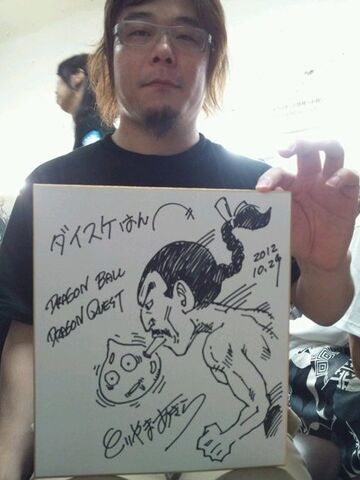 ダイスケはん へ
2012
10.29
DRAGON BALL
DRAGON QUEST
とりやまあきら